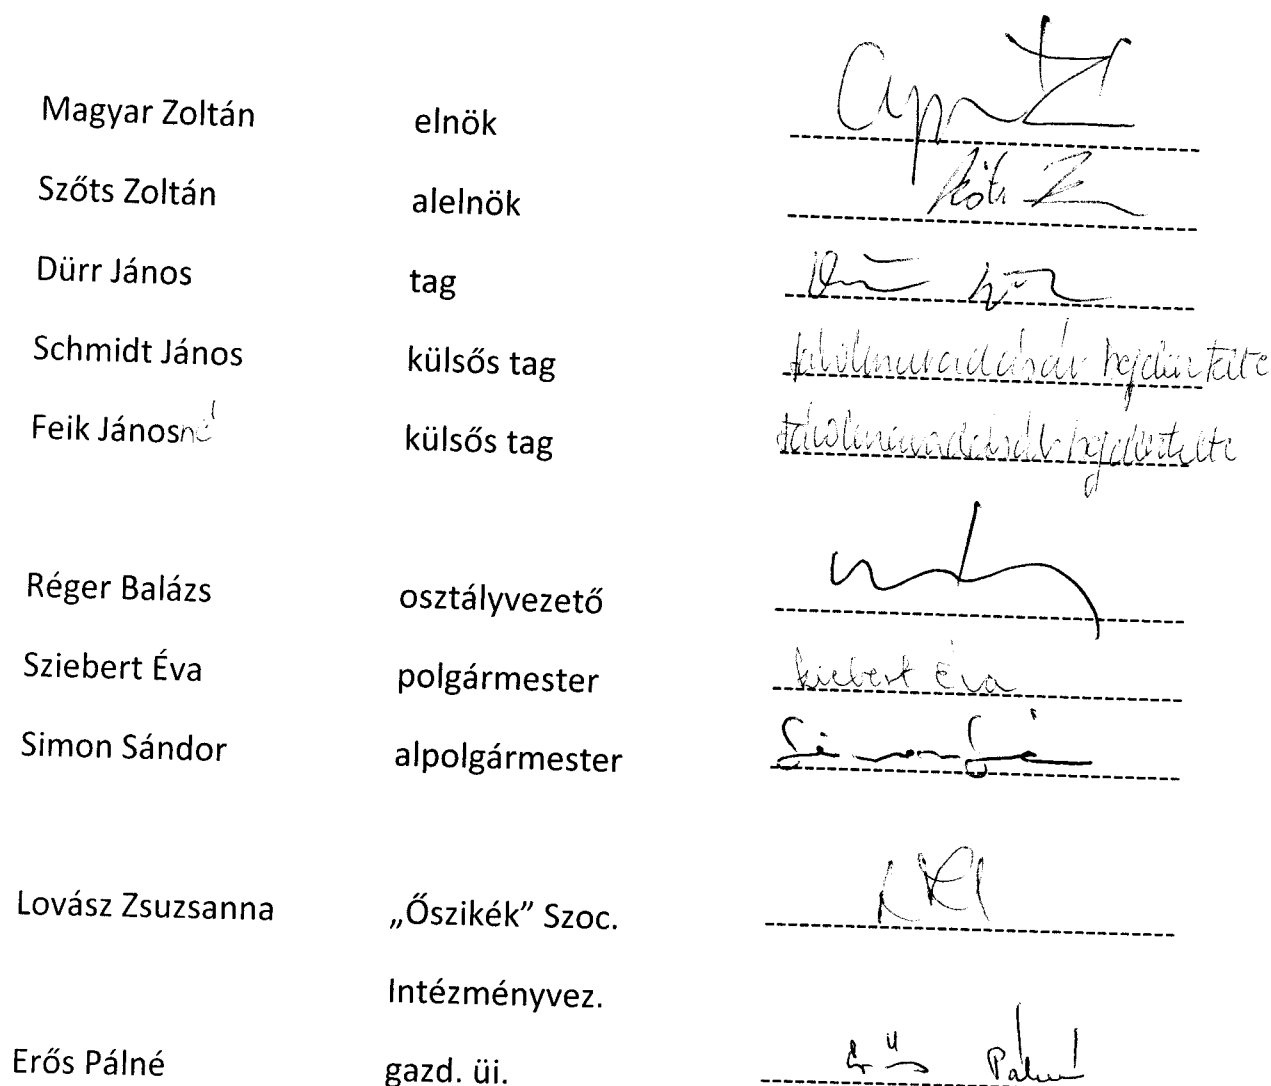 Magyar Zoltán elnök
Szőts Zoltán alelnök
Dürr János tag
Schmidt János külsős tag távolmaradását bejelentette
Feik Jánosné külsős tag távolmaradását bejelentette
Réger Balázs osztályvezető
Sziebert Éva polgármester Sziebert Éva
Simon Sándor alpolgármester
Lovász Zsuzsanna „Őszikék” Szoc.
Intézményvez.
Erős Pálné gazd. üi. Erős Pálné